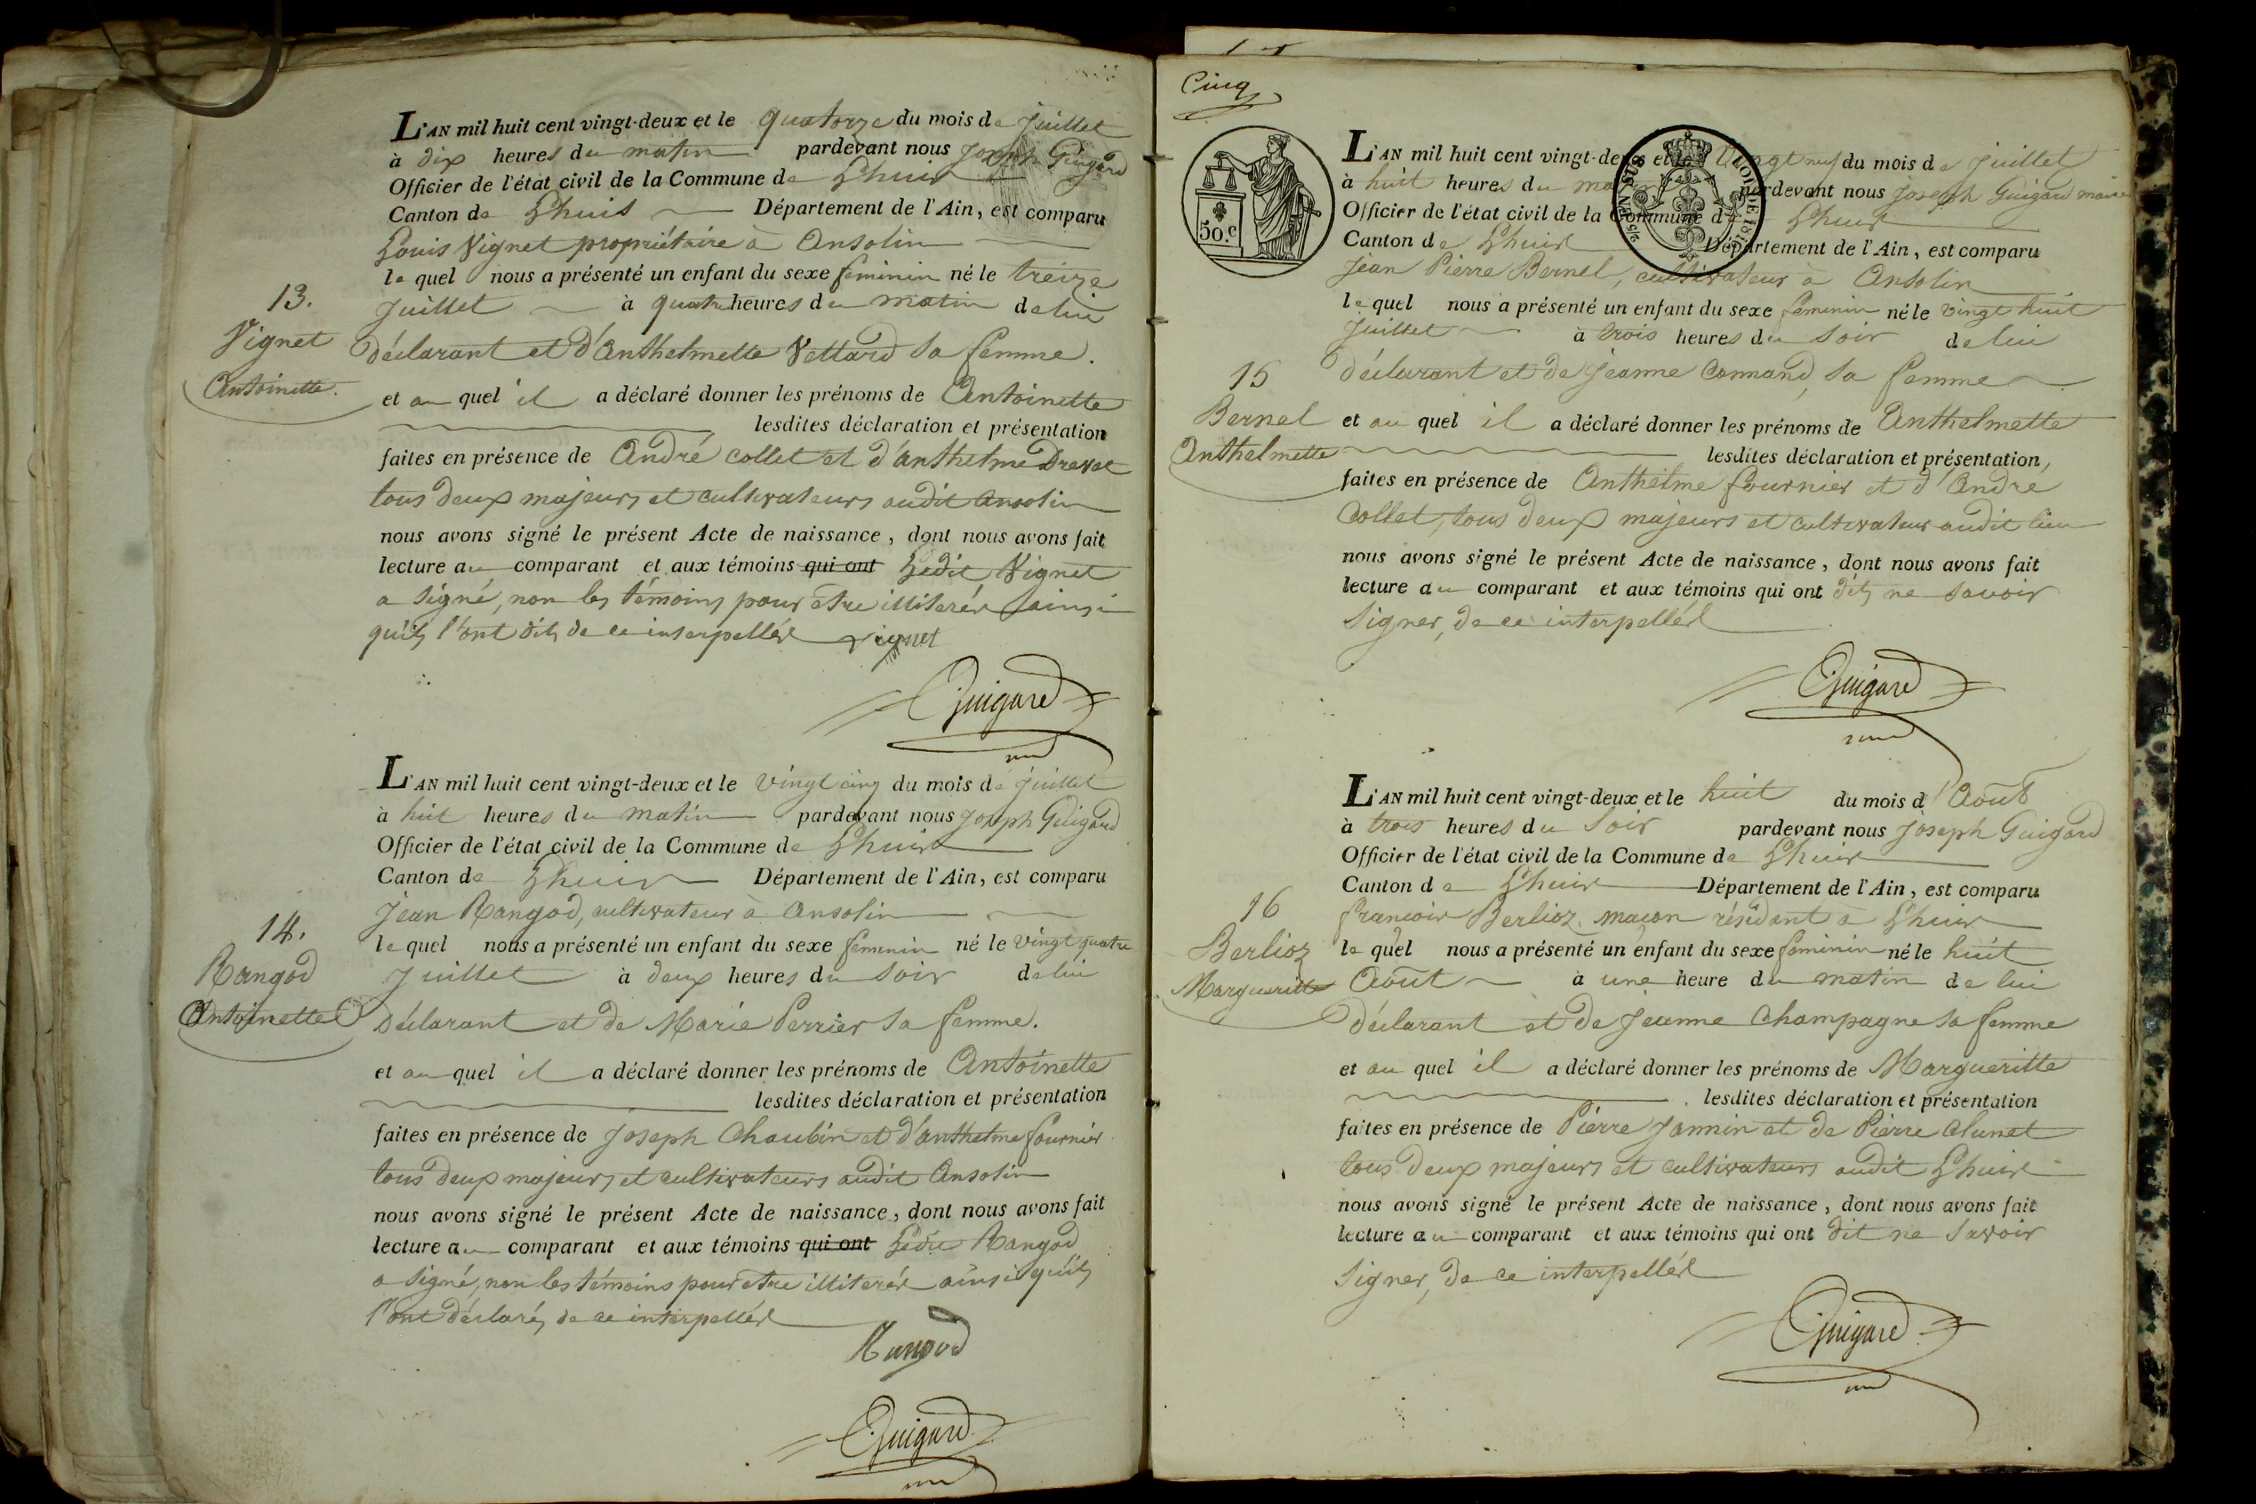 L'AN mil huit cent vingt-deux et le quatorze du mois de juillet
à dix heures du matin pardevant nous Joseph Guigard
Officier de l'état civil de la Commune de Lhuis
Canton de Lhuis Département de l'Ain, est comparu
Louis Vignet propriétaire à Ansolin
le quel nous a présenté un enfant du sexe feminin né le treize
13.
juillet à quatre heures du matin de lui
Vignet
déclarant et d'Anthelmette Vettard sa femme.
Antoinette.
et au quel il a déclaré donner les prénoms de Antoinette
lesdites déclaration et présentation
faites en présence de André Collet et d'anthelme Drevet
tous deux majeurs et cultivateurs audit Ansolin
nous avons signé le présent Acte de naissance, dont nous avons fait
lecture au comparant et aux témoins qui ont Ledit Vignet
a signé, non les témoins pour etre illiterés ainsi
qu'ils l'ont dit, de ce interpellés vignet
Guigard
L'AN mil huit cent vingt-deux et le vingt cinq du mois de juillet
à huit heures du matin pardevant nous Joseph Guigard
Officier de l'état civil de la Commune de Lhuis
Canton de Lhuis Département de l'Ain, est comparu
Jean Rangod, cultivateur à Ansolin
14.
le quel nous a présenté un enfant du sexe feminin né le vingt quatre
Rangod
Juillet à deux heures du soir de lui
Antoinette
déclarant et de Marie Perrier sa femme.
et au quel il a déclaré donner les prénoms de Antoinette
lesdites déclaration et présentation
faites en présence de Joseph Chaubin et d'anthelme fournier
tous deux majeurs et cultivateurs audit Ansolin
nous avons signé le présent Acte de naissance, dont nous avons fait
lecture au comparant et aux témoins qui ont Ledit Rangod
a signé, non les témoins pour etre illiterés ainsi qu'ils
l'ont déclaré, de ce interpellés
Rangod
Guigard
Cinq
50.c
L'AN mil huit cent vingt-deux et le vingt neuf du mois de juillet
à huit heures du matin pardevant nous Joseph Guigard maire
Officier de l'état civil de la Commune de Lhuis
Canton de Lhuis Département de l'Ain, est comparu
Jean Pierre Bernel, cultivateur à Ansolin
le quel nous a présenté un enfant du sexe feminin né le vingt huit
juillet à trois heures du soir de lui
15
déclarant et de Jeanne Connand, sa femme
Bernel
et au quel il a déclaré donner les prénoms de Anthelmette
Anthelmette
lesdites déclaration et présentation,
faites en présence de Anthelme fournier et d'André
Collet, tous deux majeurs et cultivateurs audit lieu
nous avons signé le présent Acte de naissance, dont nous avons fait
lecture au comparant et aux témoins qui ont dit, ne savoir
signer, de ce interpellés
Guigard
L'AN mil huit cent vingt-deux et le huit du mois d'Août
à trois heures du soir pardevant nous Joseph Guigard
Officier de l'état civil de la Commune de Lhuis
Canton de Lhuis Département de l'Ain, est comparu
16
francois Berlioz maçon résidant à Lhuis
Berlioz
le quel nous a présenté un enfant du sexe feminin né le huit
Margueritte
Août à une heure du matin de lui
déclarant et de Jeanne Champagne sa femme
et au quel il a déclaré donner les prénoms de Margueritte
lesdites déclaration et présentation
faites en présence de Pierre Jannin et de Pierre Clunet
tous deux majeurs et cultivateurs audit Lhuis
nous avons signé le présent Acte de naissance, dont nous avons fait
lecture au comparant et aux témoins qui ont dit ne savoir
signer, de ce interpellés
Guigard